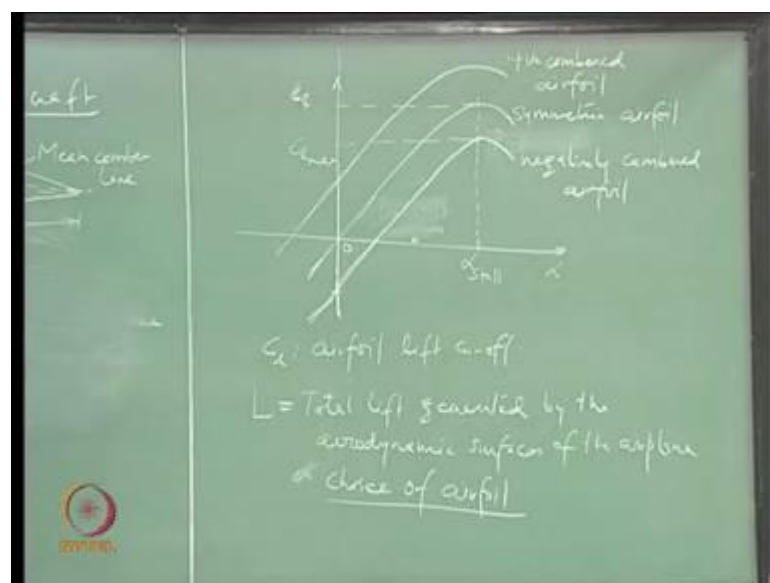 craft
Mean camber
line
+ve cambered
airfoil
symmetric airfoil
negatively cambered
airfoil
C_l
C_lmax
0
α_stall
α
C_l: airfoil lift co-eff
L = Total lift generated by the
aerodynamic surfaces of the airplane
choice of airfoil